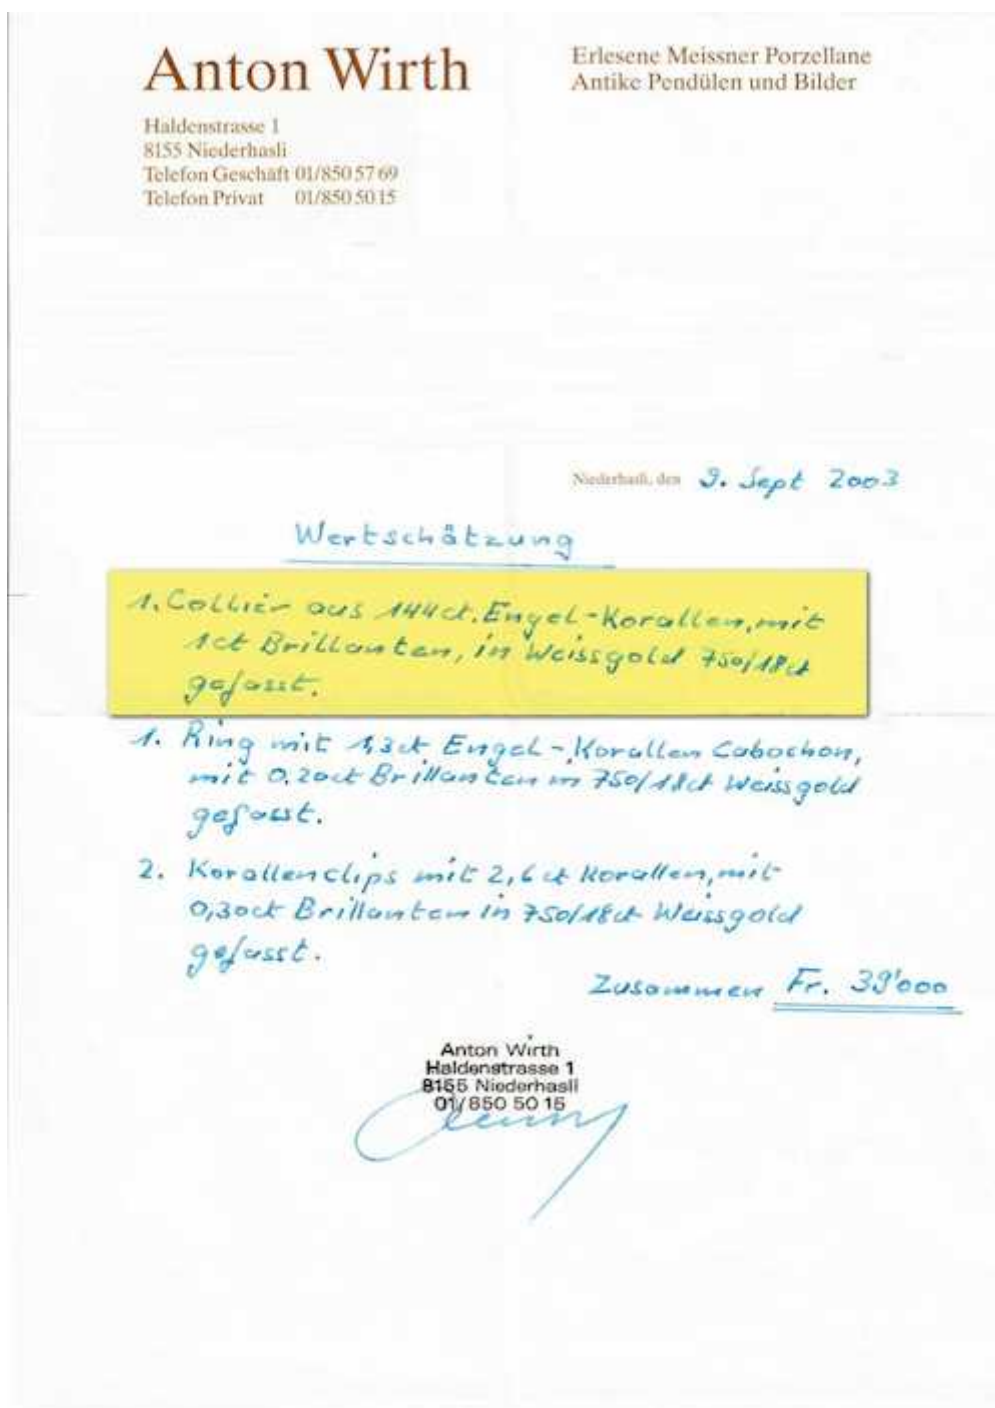 Anton Wirth
Erlesene Meissner Porzellane
Antike Pendülen und Bilder
Haldenstrasse 1
8155 Niederhasli
Telefon Geschäft 01/850 57 69
Telefon Privat 01/850 50 15
Niederhasli, den 9. Sept 2003
Wertschätzung
1. Collier aus 144ct. Engel-Korallen, mit
1ct Brillanten, in Weissgold 750/18ct
gefasst.
1. Ring mit 1,3ct Engel-Korallen Cabochon,
mit 0.20ct Brillanten in 750/18ct Weissgold
gefasst.
2. Korallenclips mit 2,6ct Korallen, mit
0,30ct Brillanten in 750/18ct Weissgold
gefasst.
Zusammen Fr. 39'000
Anton Wirth
Haldenstrasse 1
8155 Niederhasli
01/850 50 15